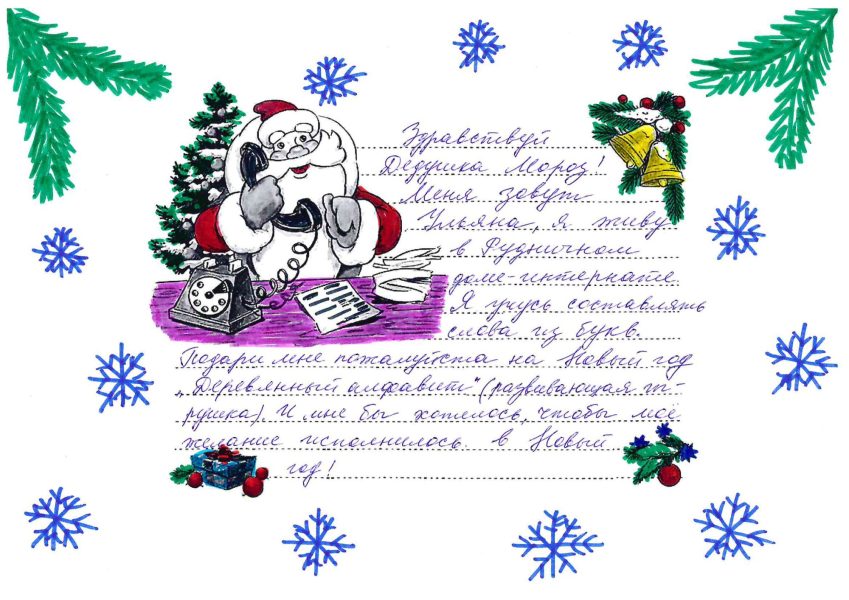 Здравствуй
Дедушка Мороз!
Меня зовут
Ульяна, я живу
в Рудничном
доме-интернате.
Я учусь составлять
слова из букв.
Подари мне пожалуйста на Новый год
„Деревянный алфавит" (развивающая иг-
рушка). И мне бы хотелось, чтобы моё
желание исполнилось в Новый
год!